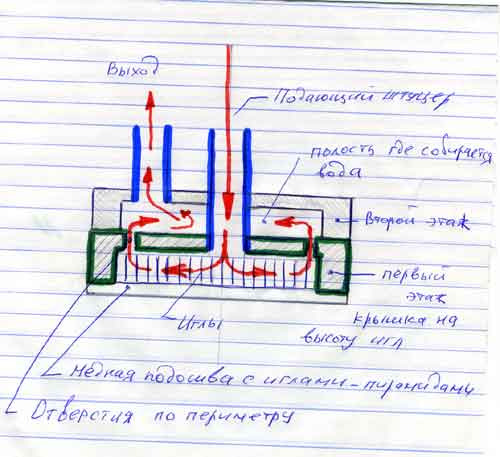 Выход
Подающий штуцер
полость где собирается
вода
Второй этаж
первый
этаж
крышка на
высоту игл
Иглы
Медная подошва с иглами-пирамидами
Отверстия по периметру